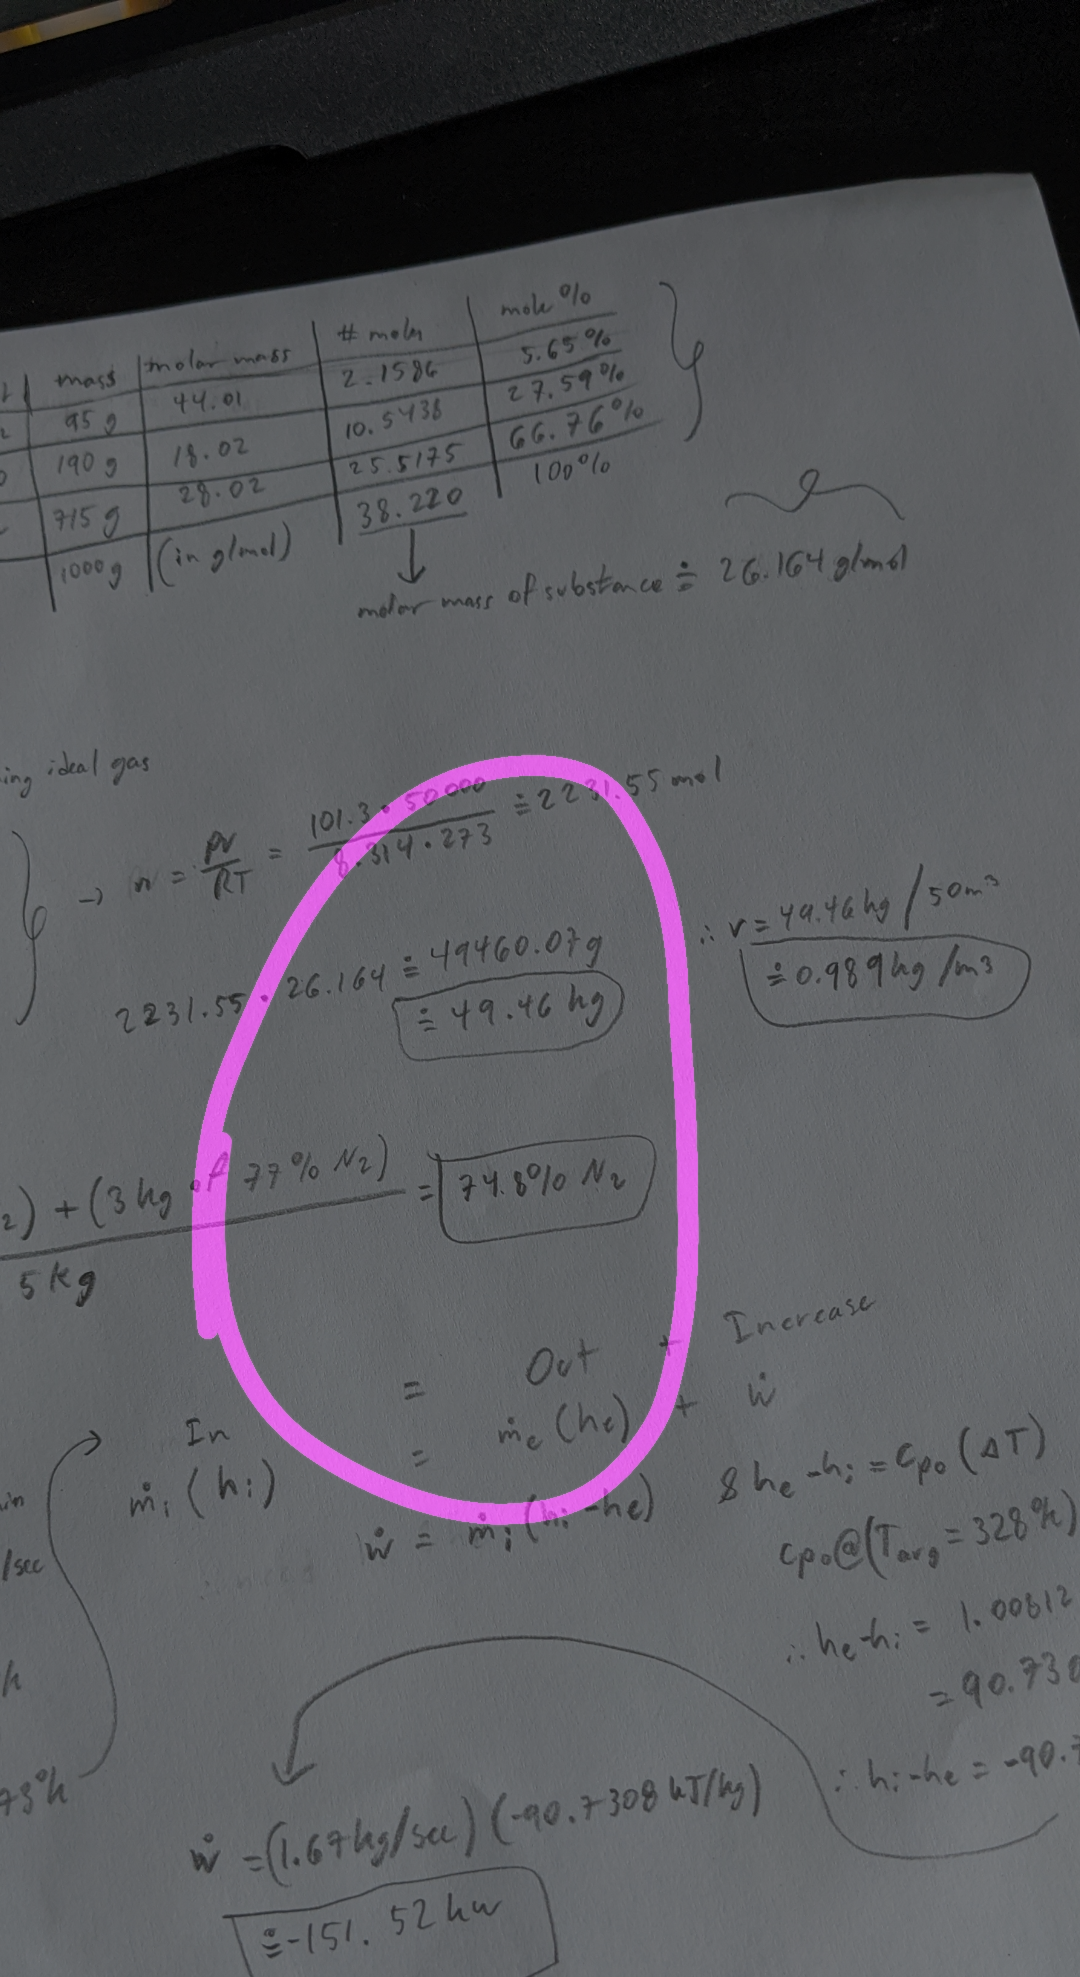 mass molar mass # moles mole %
95 g 44.01 2.1586 5.65%
190 g 18.02 10.5438 27.59%
715 g 28.02 25.5175 66.76%
1000g (in g/mol) 38.220 100%
molar mass of substance ≐ 26.164 g/mol
ing ideal gas
→ n = PV/RT = 101.3 • 50000 / 8.314 • 273 ≐ 2231.55 mol
2231.55 • 26.164 ≐ 49460.07g
≐ 49.46 kg
∴ r = 49.46 kg / 50m³
≐ 0.989 kg/m3
2) + (3 kg of 77% N2) = 74.8% N2
5 kg
In = Out + Increase
ṁi (hi) = ṁe (he) + ẇ
ẇ = ṁi (hi - he)
& he - hi = Cpo (ΔT)
in
/sec
Cpo@(Tavg = 328°k)
∴ he-hi = 1.00812
= 90.730
k
73°k
∴ hi-he = -90.7
ẇ = (1.67 kg/sec) (-90.7308 kJ/kg)
≐ -151.52 kw